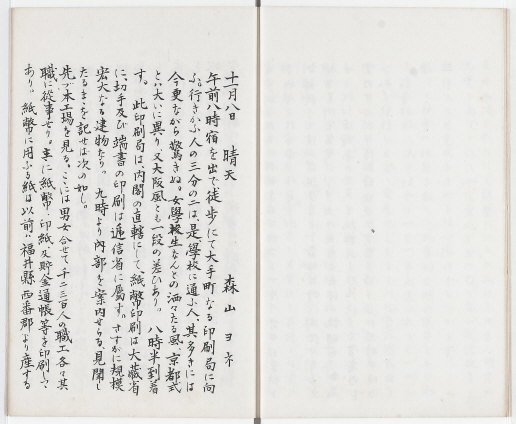 十一月八日　晴天
森山ヨネ
午前八時宿を出で徒歩にて大手町なる印刷局に向
ふ。行きかふ人の三分の二は是学校に通ふ人、其多きには
今更ながら驚きぬ。女學校生なんどの洒々たる風、京都式
とハ大いに異り又大阪風とも一段の差ひあり。　八時半到着
す。　此印刷局は、内閣の直轄にして、紙幣印刷は大蔵省
に、切手及び端書の印刷は逓信省に屬す。さすがに規模
宏大なる建物なり。　九時より内部を案内せらる、見聞し
たるまゝを記せば次の如し。
先づ本工場を見る。こゝには男女合せて千二三百人の職工各々其
職に從事せり。主に紙幣・印紙及貯金通帳等を印刷しつゝ
あり。紙幣に用ふる紙は以前ハ福井縣西番郡より産する